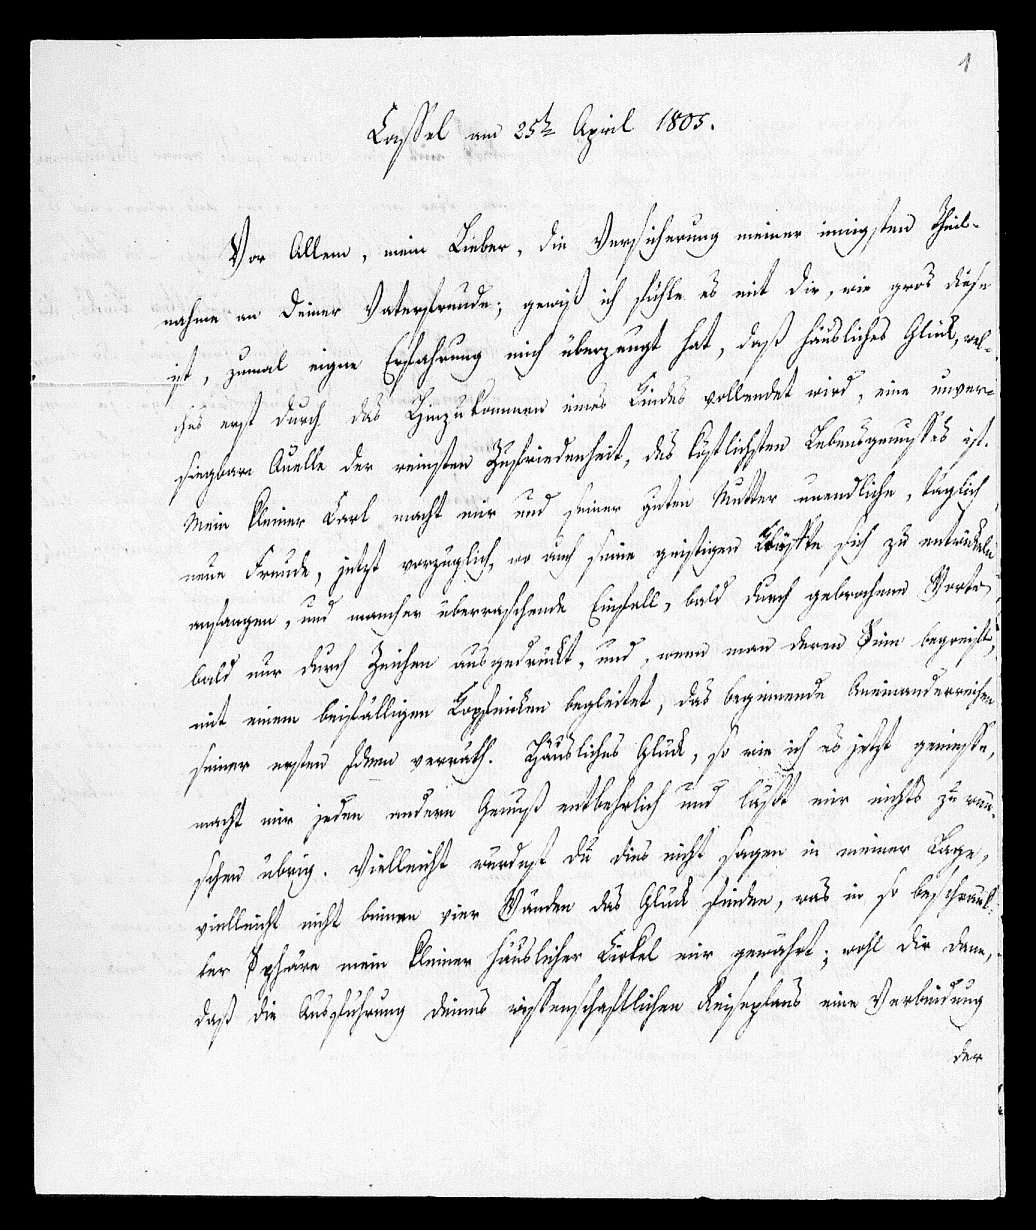 1
Cassel am 25ten April 1805.
Vor Allem, mein Lieber, die Versicherung meiner innigsten Theil-
nahme an Deiner Vaterfreude; gewiß ich fühle es mit Dir, wie gros diese
ist, zumal eigne Erfahrung mich überzeugt hat, daß häusliches Glück, wel-
ches erst durch das Hinzukommen eines Kindes vollendet wird, eine unver-
siegbare Quelle der reinsten Zufriedenheit, des köstlichsten Lebensgenusses ist.
Mein kleiner Carl macht mir und seiner guten Mutter unendliche, täglich
neue Freude, jetzt vorzüglich, wo auch seine geistigen Kräfte sich zu entwickeln
anfangen, und mancher überraschende Einfall, bald durch gebrochene Worte,
bald nur durch Zeichen ausgedrückt, und, wenn man deren Sinn begreift,
mit einem beifälligen Kopfnicken begleitet, das beginnende Aneinanderreihen
seiner ersten Ideen verräth. Häusliches Glück, so wie ich es jetzt geniesse,
macht mir jeden andern Genuß entbehrlich und läßt mir nichts zu wün-
schen übrig. Vielleicht würdest Du dies nicht sagen in meiner Lage,
vielleicht nicht binnen vier Wänden das Glück finden, was in so beschränk-
ter Sphäre mein kleiner häuslicher Cirkel mir gewährt; wohl Dir dann,
daß die Ausführung deines wissenschaftlichen Reiseplans eine Verbindung
der